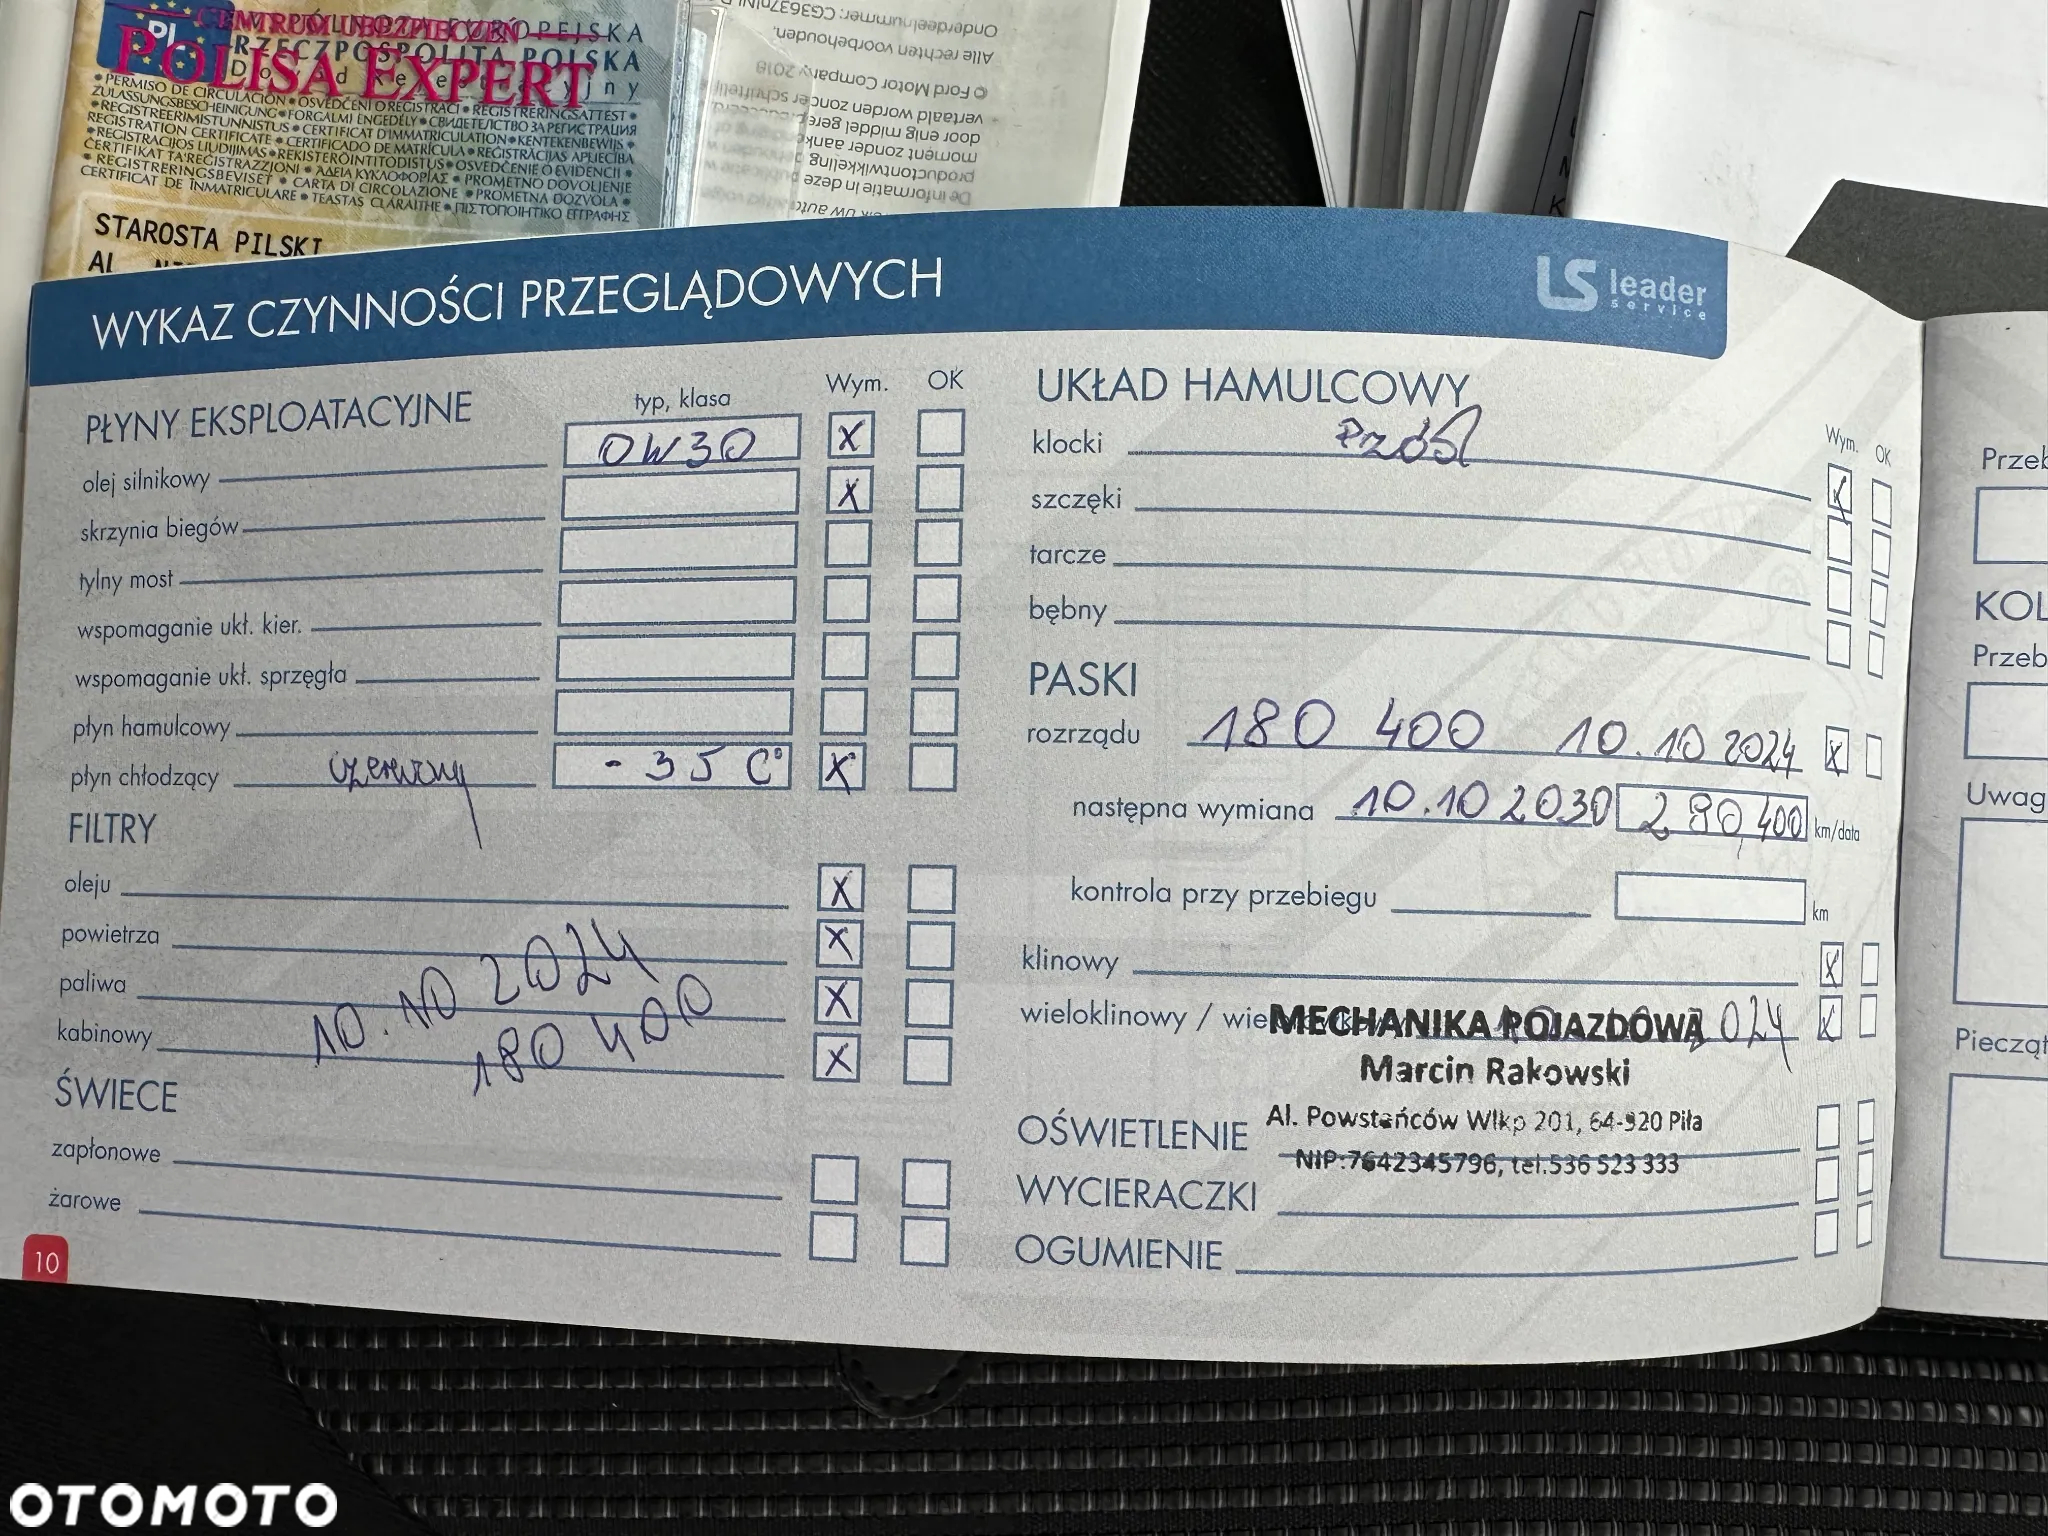 CENTRUM UBEZPIECZEŃ
POLISA EXPERT
PL
RZECZPOSPOLITA POLSKA
• PERMISO DE CIRCULACIÓN • OSVĚDČENÍ O REGISTRACI • REGISTRERINGSATTEST •
ZULASSUNGSBESCHEINIGUNG • FORGALMI ENGEDÉLY • СВИДЕТЕЛСТВО ЗА РЕГИСТРАЦИЯ
• REGISTREERIMISTUNNISTUS •
REGISTRATION CERTIFICATE • CERTIFICAT D'IMMATRICULATION • KENTEKENBEWIJS •
• REGISTRĀCIJAS APLIECĪBA
CERTIFICADO DE MATRÍCULA •
• REGISTRACIJOS LIUDIJIMAS • REKISTERÖINTITODISTUS • OSVEDČENIE O EVIDENCII •
CERTIFIKAT TA'REGISTRAZZJONI • ΑΔΕΙΑ ΚΥΚΛΟΦΟΡΙΑΣ • PROMETNO DOVOLJENJE
• REGISTRERINGSBEVISET • CARTA DI CIRCOLAZIONE • PROMETNA DOZVOLA •
CERTIFICAT DE ÎNMATRICULARE • TEASTAS CLÁRAITHE • ΠΙΣΤΟΠΟΙΗΤΙΚΟ ΕΓΓΡΑΦΗΣ
STAROSTA PILSKI
Alle rechten voorbehouden.
© Ford Motor Company 2018
De informatie in deze
WYKAZ CZYNNOŚCI PRZEGLĄDOWYCH
LS leader service
PŁYNY EKSPLOATACYJNE typ, klasa Wym. OK
olej silnikowy 0W30 X
skrzynia biegów X
tylny most
wspomaganie ukł. kier.
wspomaganie ukł. sprzęgła
płyn hamulcowy
płyn chłodzący czerwony - 35 C° X
FILTRY
oleju X
powietrza X
paliwa 10.10 2024 X
kabinowy 180 400 X
ŚWIECE
zapłonowe
żarowe
10
UKŁAD HAMULCOWY
Wym. OK
klocki Przód X
szczęki
tarcze
bębny
PASKI
rozrządu 180 400 10.10 2024 X
następna wymiana 10.10 2030 280,400 km/data
kontrola przy przebiegu km
klinowy X
wieloklinowy / 2024 X
MECHANIKA POJAZDOWA
Marcin Rakowski
Al. Powstańców Wlkp 201, 64-920 Piła
NIP:7642345796, tel.536 523 333
OŚWIETLENIE
WYCIERACZKI
OGUMIENIE
Przeb
KOL
Przeb
Uwag
Piecząt
OTOMOTO